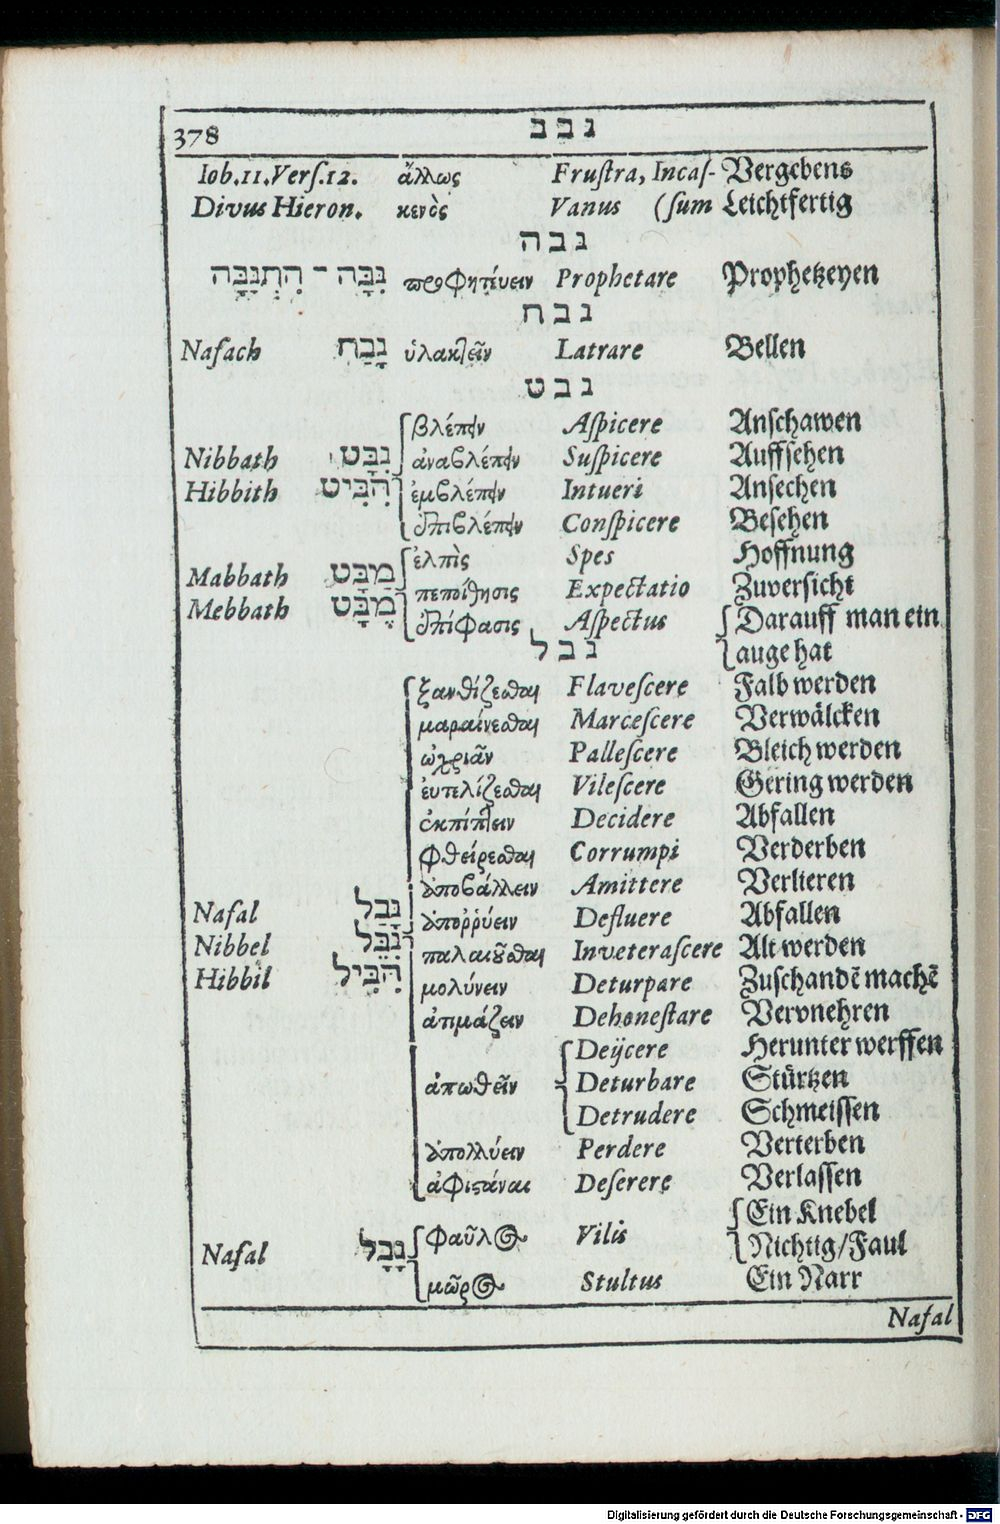 378 נבב
Iob.11.Verſ.12. ἄλλως Fruſtra, Incaſ- Vergebens
Divus Hieron. κενὸς Vanus (ſum Leichtfertig
נבה
נִבָּה - הִתְנַבָּה προφητεύειν Prophetare Prophetzeyen
נבח
Nafach נָבַח ὑλακτεῖν Latrare Bellen
נבט
βλέπειν Aſpicere Anſchawen
Nibbath נִבַּט ἀναβλέπειν Suſpicere Auffſehen
Hibbith הִבִּיט ἐμβλέπειν Intueri Anſechen
ἐπιβλέπειν Conſpicere Beſehen
ἐλπὶς Spes Hoffnung
Mabbath מַבַּט πεποίθησις Expectatio Zuverſicht
Mebbath מֶבָּט ἐπίφασις Aſpectus Darauff man ein
נבל auge hat
ξανθίζεσθαι Flaveſcere Falb werden
μαραίνεσθαι Marceſcere Verwälcken
ὠχριᾶν Palleſcere Bleich werden
ἐυτελίζεσθαι Vileſcere Gering werden
ἐκπίπτειν Decidere Abfallen
φθείρεσθαι Corrumpi Verderben
ἀποβάλλειν Amittere Verlieren
Nafal נָבַל ἀποῤῥύειν Defluere Abfallen
Nibbel נִבֵּל παλαιοῦσθαι Inveteraſcere Alt werden
Hibbil הִבִּיל μολύνειν Deturpare Zuſchandē machē
ἀτιμάζειν Dehoneſtare Vervnehren
Deijcere Herunter werffen
ἀπωθεῖν Deturbare Stürtzen
Detrudere Schmeiſſen
ἀπολλύειν Perdere Verterben
ἀφιϛάναι Deſerere Verlaſſen
Ein Knebel
Nafal נָבָל φαῦλος Vilis Nichtig/Faul
μῶρος Stultus Ein Narr
Nafal
Digitalisierung gefördert durch die Deutsche Forschungsgemeinschaft - DFG